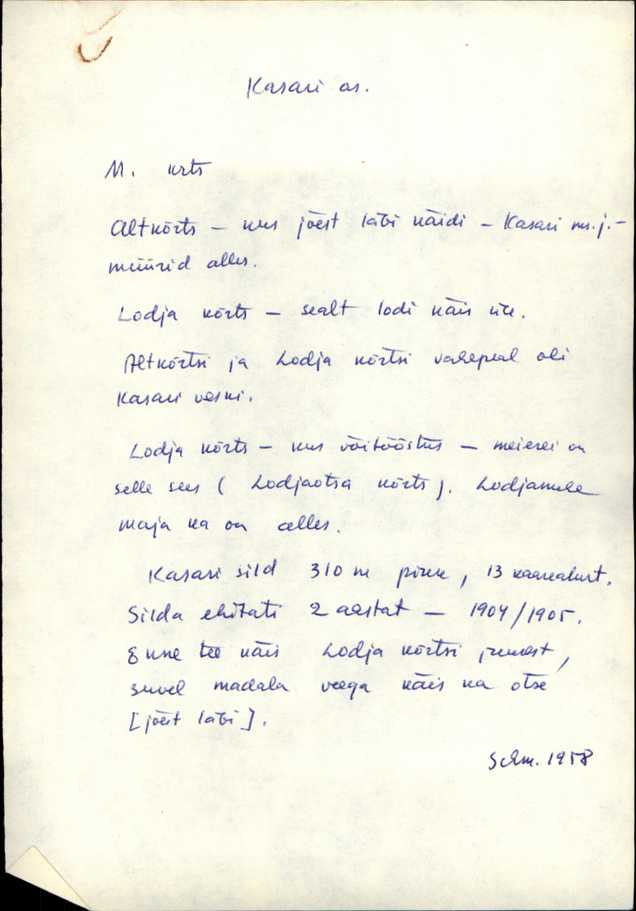 Kasari as.
M. krts
Altkõrts – kus jõest läbi käidi – Kasari ms.j. –
müürid alles.
Lodja kõrts – sealt lodi käis üle.
Altkõrtsi ja Lodja kõrtsi vahepeal oli
Kasari veski.
Lodja kõrts – kus võitööstus – meierei on
selle sees (Lodjaotsa kõrts). Lodjamehe
maja ka on alles.
Kasari sild 310 m pikk, 13 kaareakent.
Silda ehitati 2 aastat – 1904/1905.
Enne tee käis Lodja kõrtsi juurest,
suvel madala veega käis ka otse
[jõest läbi].
Schm. 1958